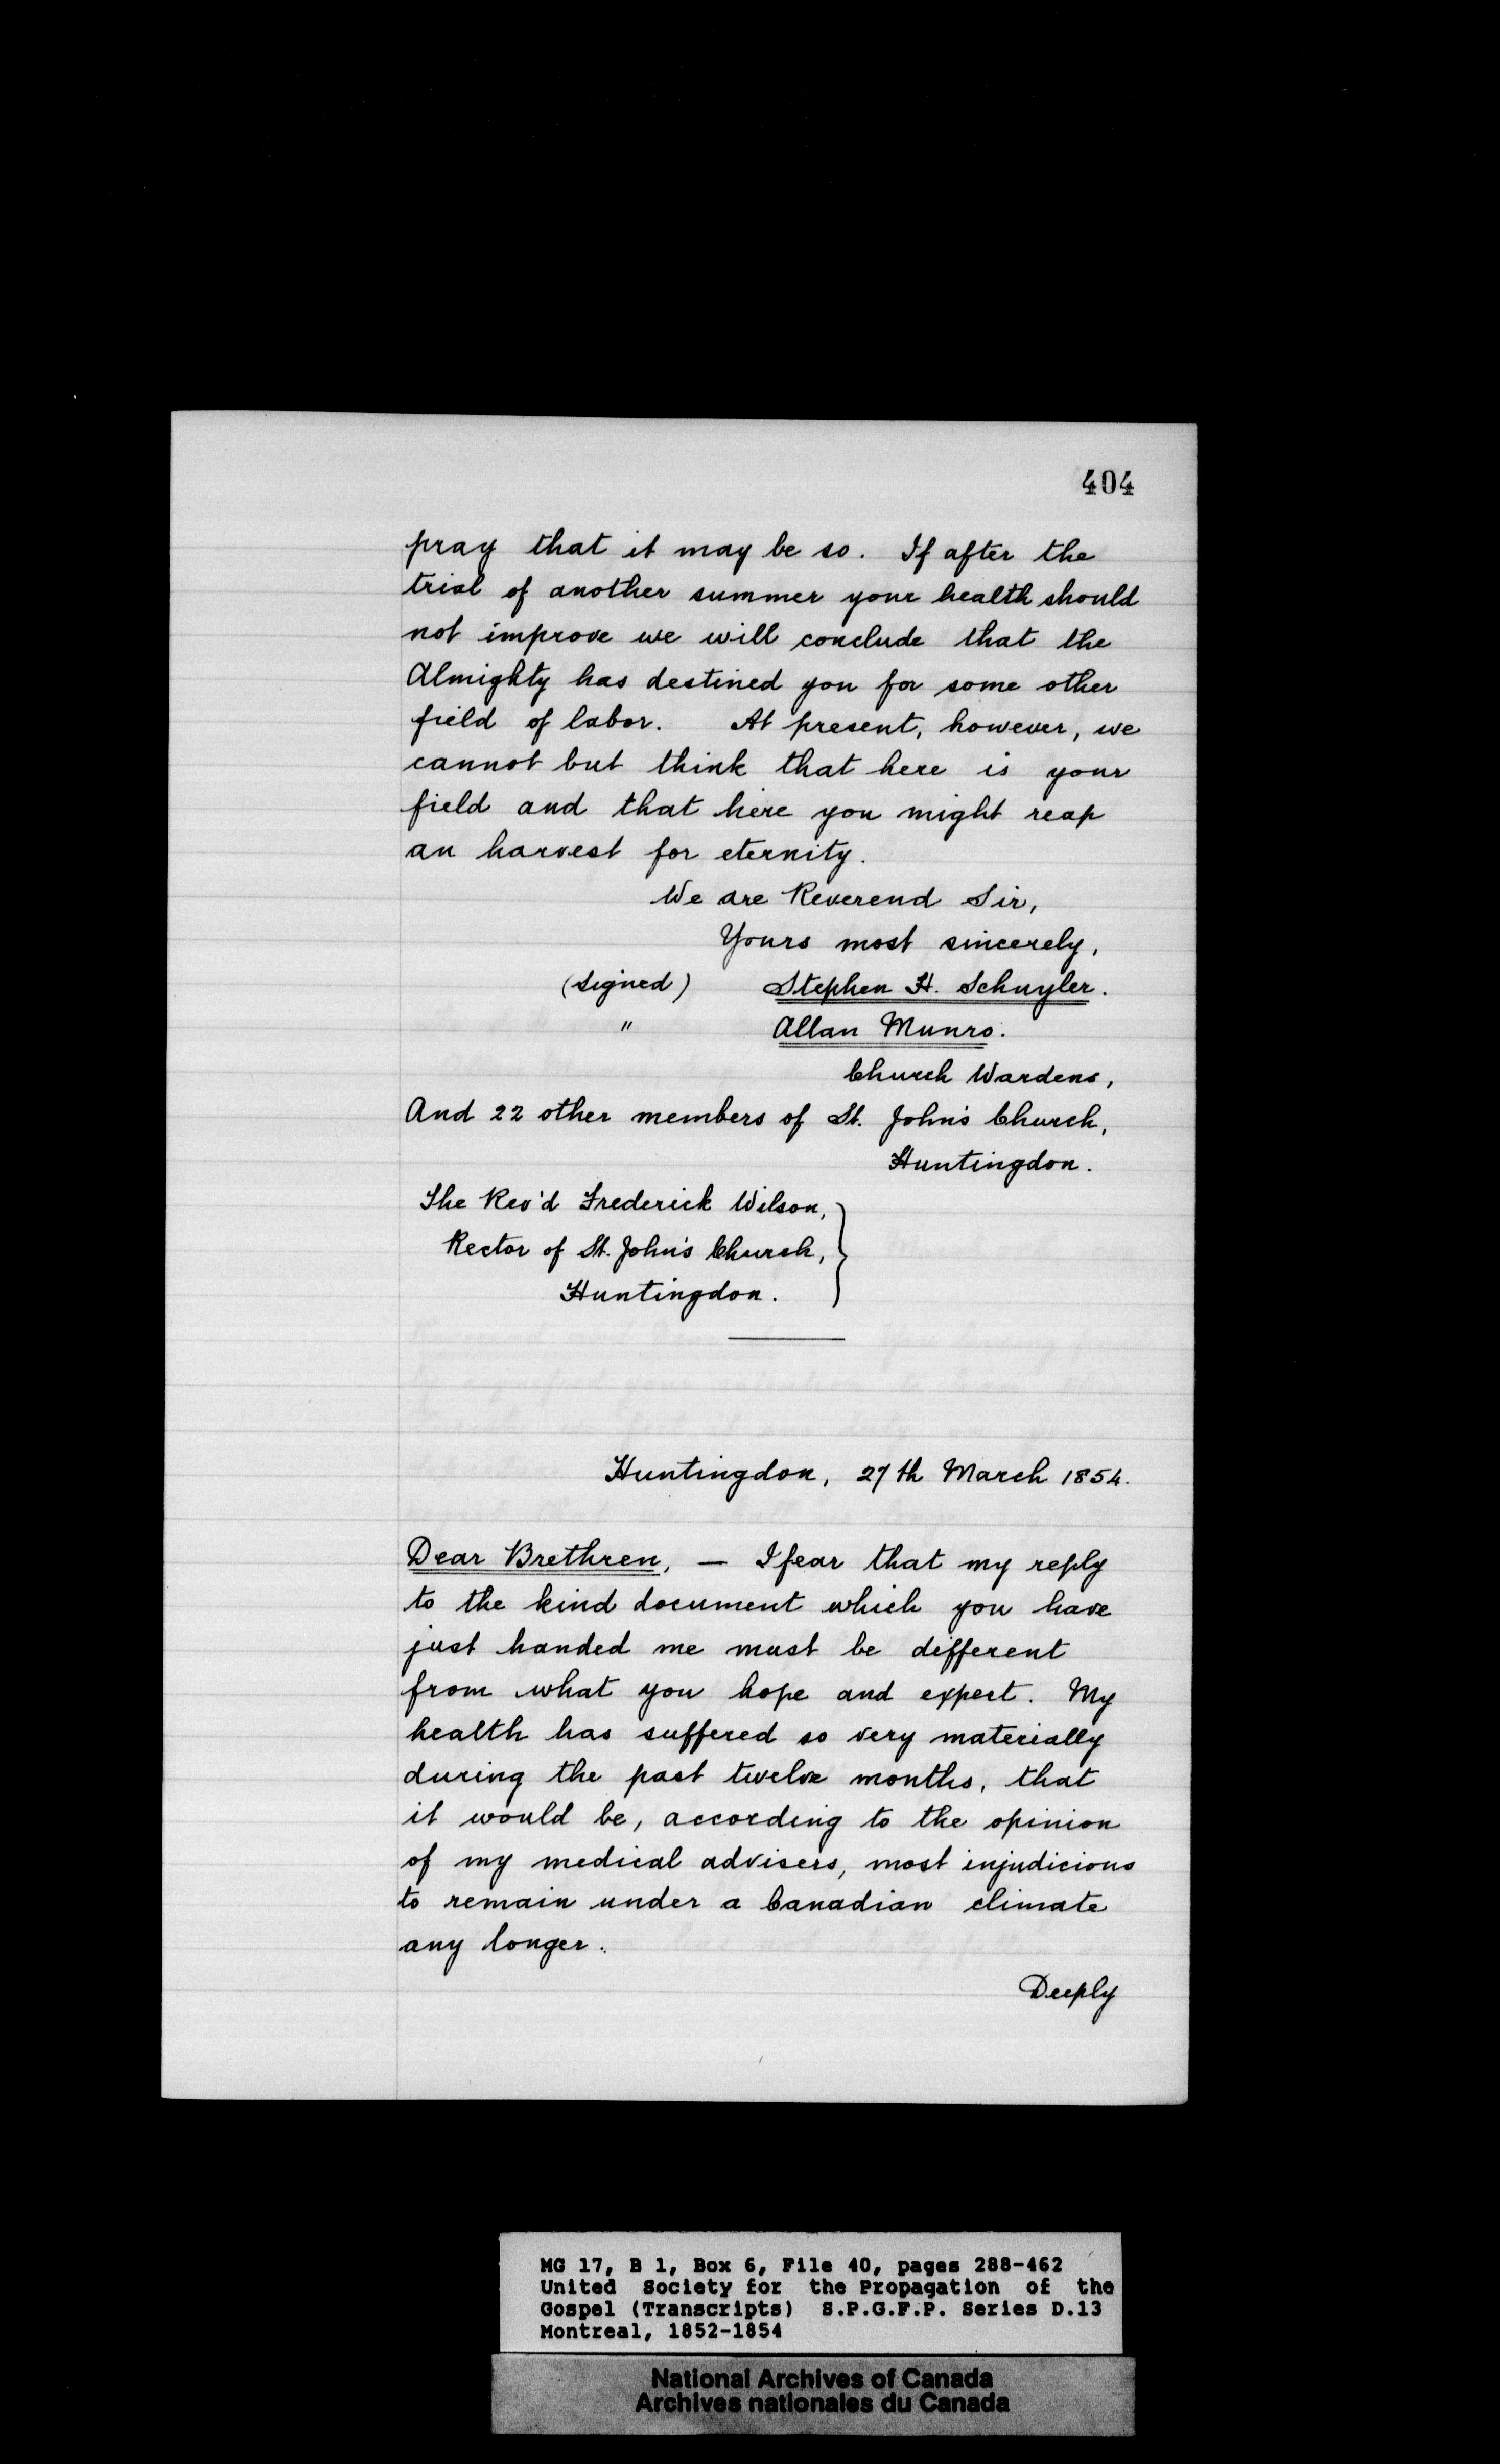 404
pray that it may be so. If after the
trial of another summer your health should
not improve we will conclude that the
Almighty has destined you for some other
field of labor. At present, however, we
cannot but think that here is your
field and that here you might reap
an harvest for eternity.
We are Reverend Sir,
Yours most sincerely,
(signed) Stephen H. Schuyler.
" Allan Munro.
Church Wardens,
And 22 other members of St. John's Church,
Huntingdon.
The Rev'd Frederick Wilson,
Rector of St. John's Church,
Huntingdon.
Huntingdon, 27th March 1854.
Dear Brethren, — I fear that my reply
to the kind document which you have
just handed me must be different
from what you hope and expect. My
health has suffered so very materially
during the past twelve months, that
it would be, according to the opinion
of my medical advisers, most injudicious
to remain under a Canadian climate
any longer.
Deeply
MG 17, B 1, Box 6, File 40, pages 288-462
United Society for the Propagation of the
Gospel (Transcripts) S.P.G.F.P. Series D.13
Montreal, 1852-1854
National Archives of Canada
Archives nationales du Canada